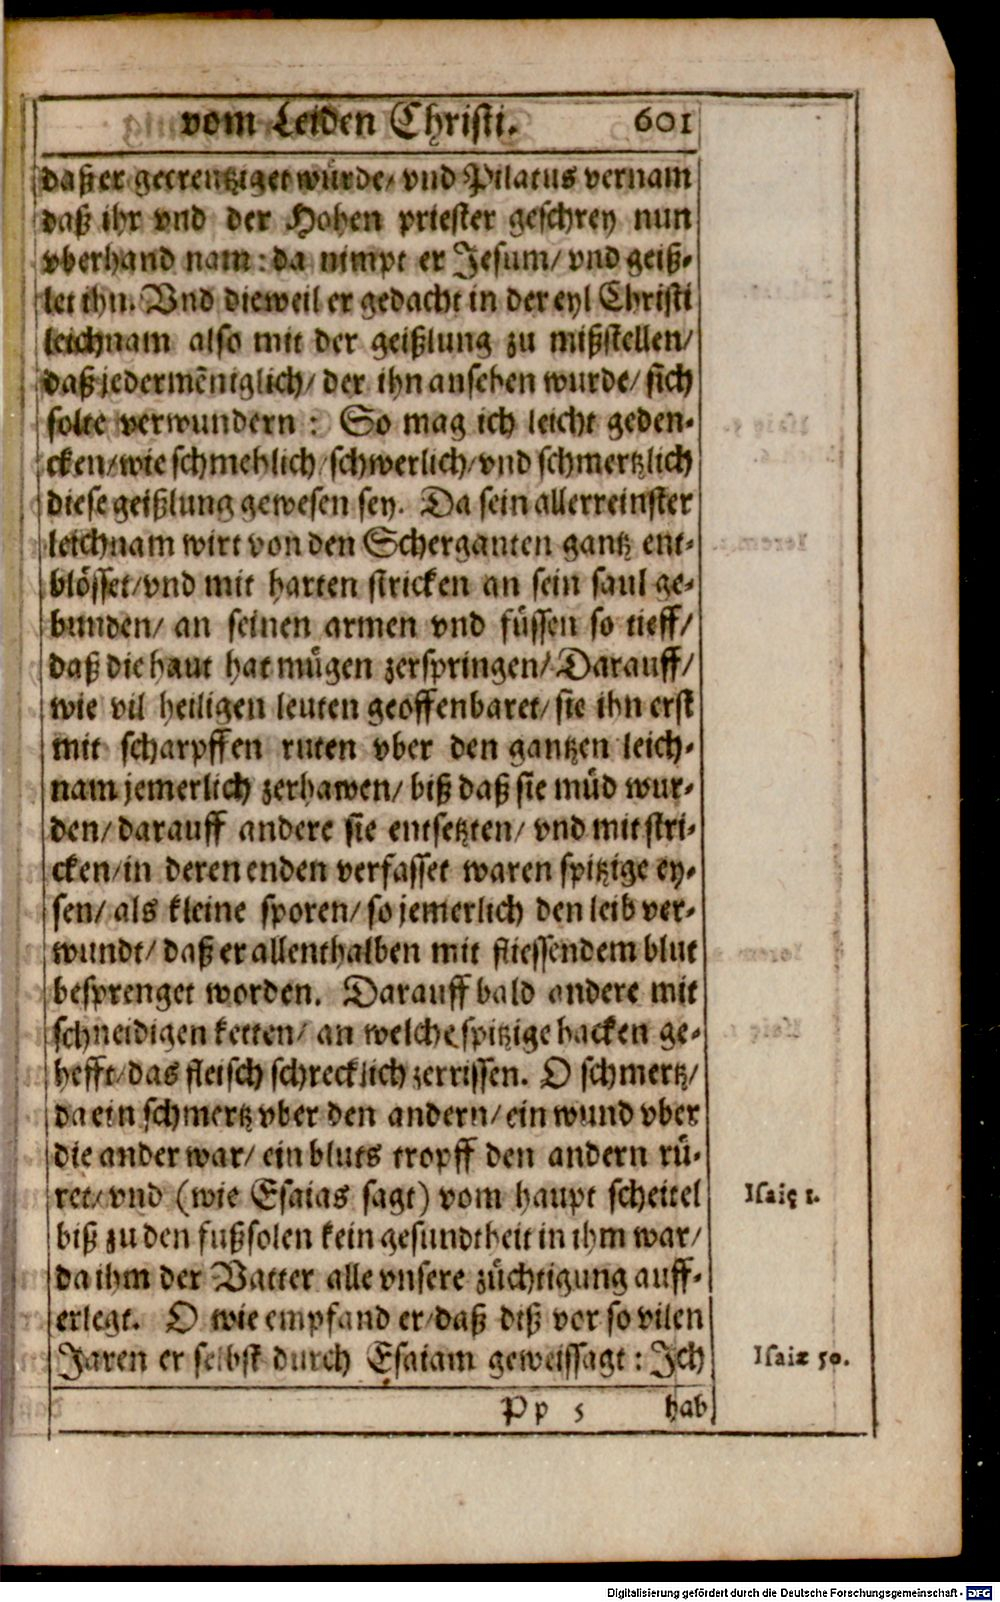 vom Leiden Christi. 601
daß er gecreutziget würde/ vnd Pilatus vernam
daß ihr vnd der Hohen priester geschrey nun
vberhand nam: da nimpt er Jesum/ vnd geiß-
let ihn. Vnd dieweil er gedacht in der eyl Christi
leichnam also mit der geißlung zu mißstellen/
daß jedermẽniglich/ der ihn ansehen wurde/ sich
solte verwundern: So mag ich leicht geden-
cken/ wie schmehlich/ schwerlich/ vnd schmertzlich
diese geißlung gewesen sey. Da sein allerreinster
leichnam wirt von den Scherganten gantz ent-
blösset/ vnd mit harten stricken an sein saul ge-
bunden/ an seinen armen vnd füssen so tieff/
daß die haut hat mügen zerspringen/ Darauff/
wie vil heiligen leuten geoffenbaret/ sie ihn erst
mit scharpffen ruten vber den gantzen leich-
nam jemerlich zerhawen/ biß daß sie müd wur-
den/ darauff andere sie entsetzten/ vnd mit stri-
cken/ in deren enden verfasset waren spitzige ey-
sen/ als kleine sporen/ so jemerlich den leib ver-
wundt/ daß er allenthalben mit fliessendem blut
besprenget worden. Darauff bald andere mit
schneidigen ketten/ an welche spitzige hacken ge-
hefft/ das fleisch schrecklich zerrissen. O schmertz/
da ein schmertz vber den andern/ ein wund vber
die ander war/ ein bluts tropff den andern rü-
ret/ vnd (wie Esaias sagt) vom haupt scheitel
Isaię 1.
biß zu den fußsolen kein gesundtheit in ihm war/
da ihm der Vatter alle vnsere züchtigung auff-
erlegt. O wie empfand er/ daß diß vor so vilen
Jaren er selbst durch Esaiam geweissagt: Ich
Isaiæ 50.
Pp 5 hab
Digitalisierung gefördert durch die Deutsche Forschungsgemeinschaft - DFG